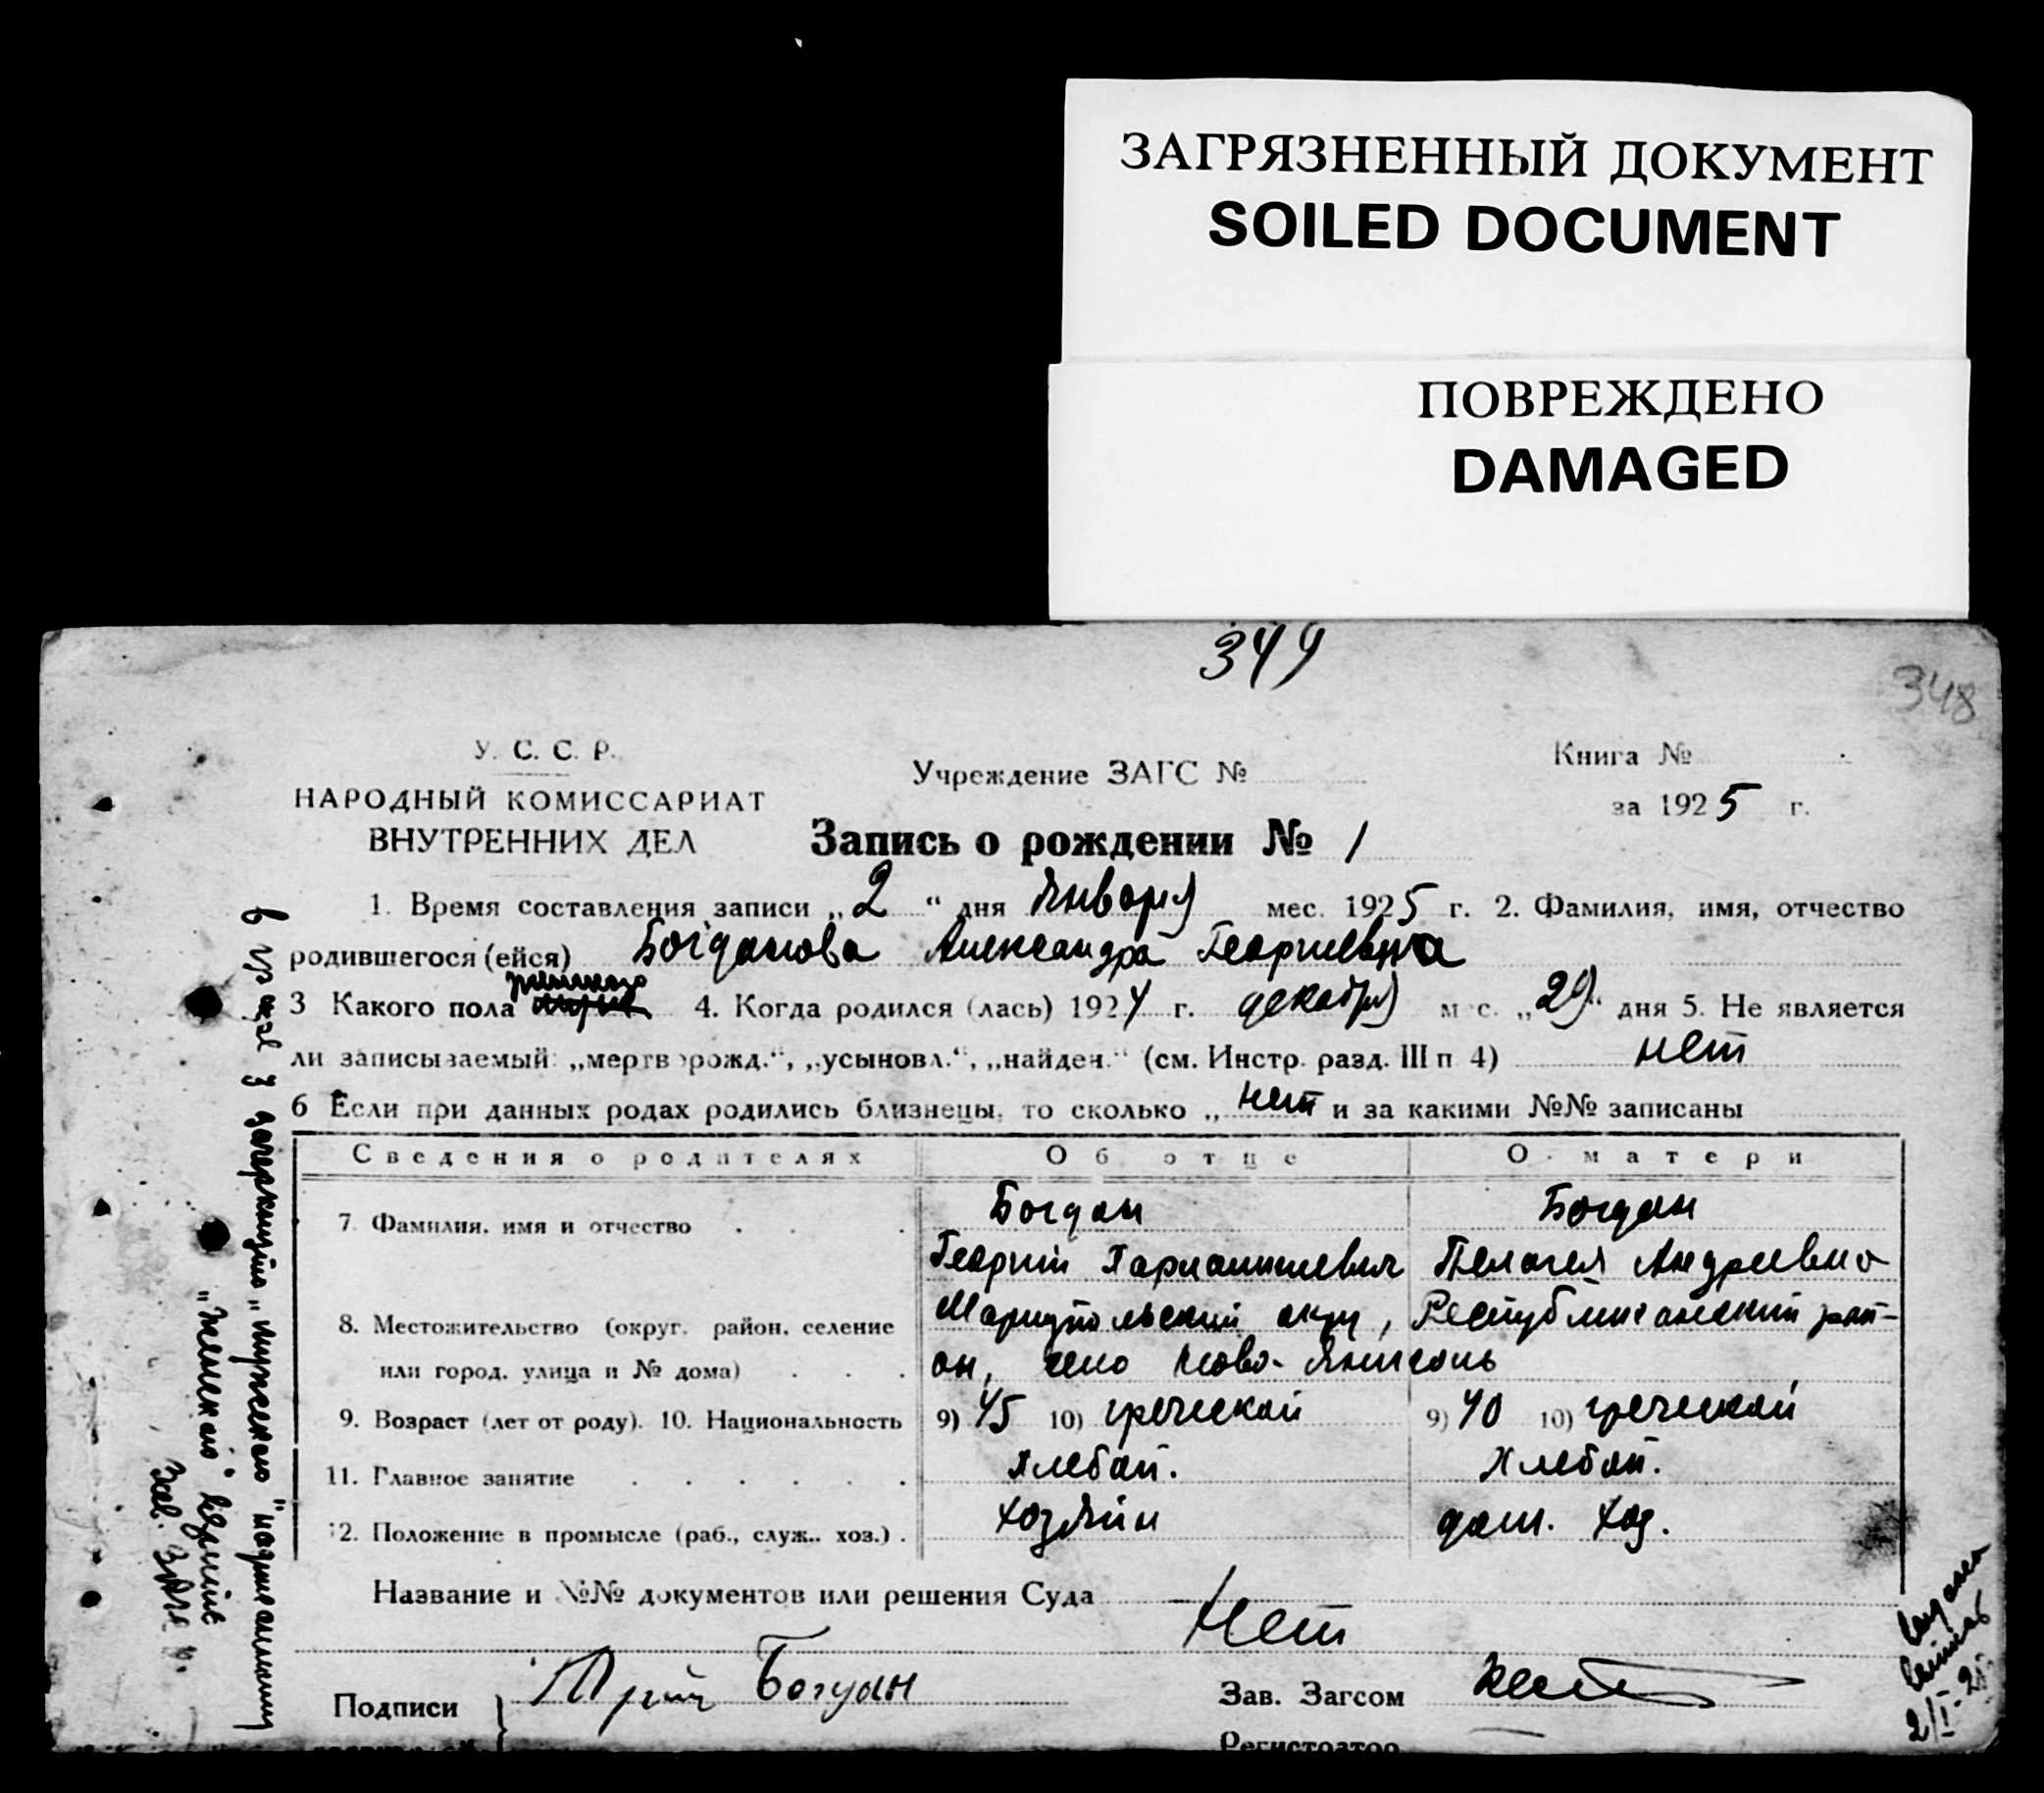 ЗАГРЯЗНЕННЫЙ ДОКУМЕНТ
SOILED DOCUMENT
ПОВРЕЖДЕНО
DAMAGED
344
348
У. С. С. Р.
НАРОДНЫЙ КОМИССАРИАТ
ВНУТРЕННИХ ДЕЛ
Учреждение ЗАГС №
Книга №
за 1925 г.
Запись о рождении № 1
1. Время составления записи „2“ дня Января мес. 1925 г. 2. Фамилия, имя, отчество
родившегося (ейся) Богданова Александра Георгиевна
3 Какого пола 4. Когда родился (лась) 1924 г. декабря мес. „29“ дня 5. Не является
ли записываемый: „мертворожд.“, „усыновл.“, „найден.“ (см. Инстр. разд. III п 4) нет
6 Если при данных родах родились близнецы, то сколько „нет и за какими №№ записаны
Сведения о родителях Об отце О матери
7. Фамилия, имя и отчество Богдан Богдан
Георгий Пелагея Андреевна
8. Местожительство (округ, район, селение Мариупольский окр, Республиканский рай-
или город, улица и № дома) он, село Ново-Янисоль
9. Возраст (лет от роду). 10. Национальность 9) 45 10) греческой 9) 40 10) греческой
11. Главное занятие Хлебоп. Хлебоп.
12. Положение в промысле (раб., служ., хоз.) Хозяин дом. хоз.
Название и №№ документов или решения Суда
Нет
Подписи Богдан Зав. Загсом
Регистратор
в графе 3 зачеркнуто „мужского“ надписанному
„женского“ верить
Зав. ЗАГС
2/I-25